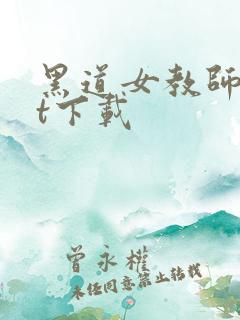 黑道女教師
t下載
曾永權
未经同意禁止转载